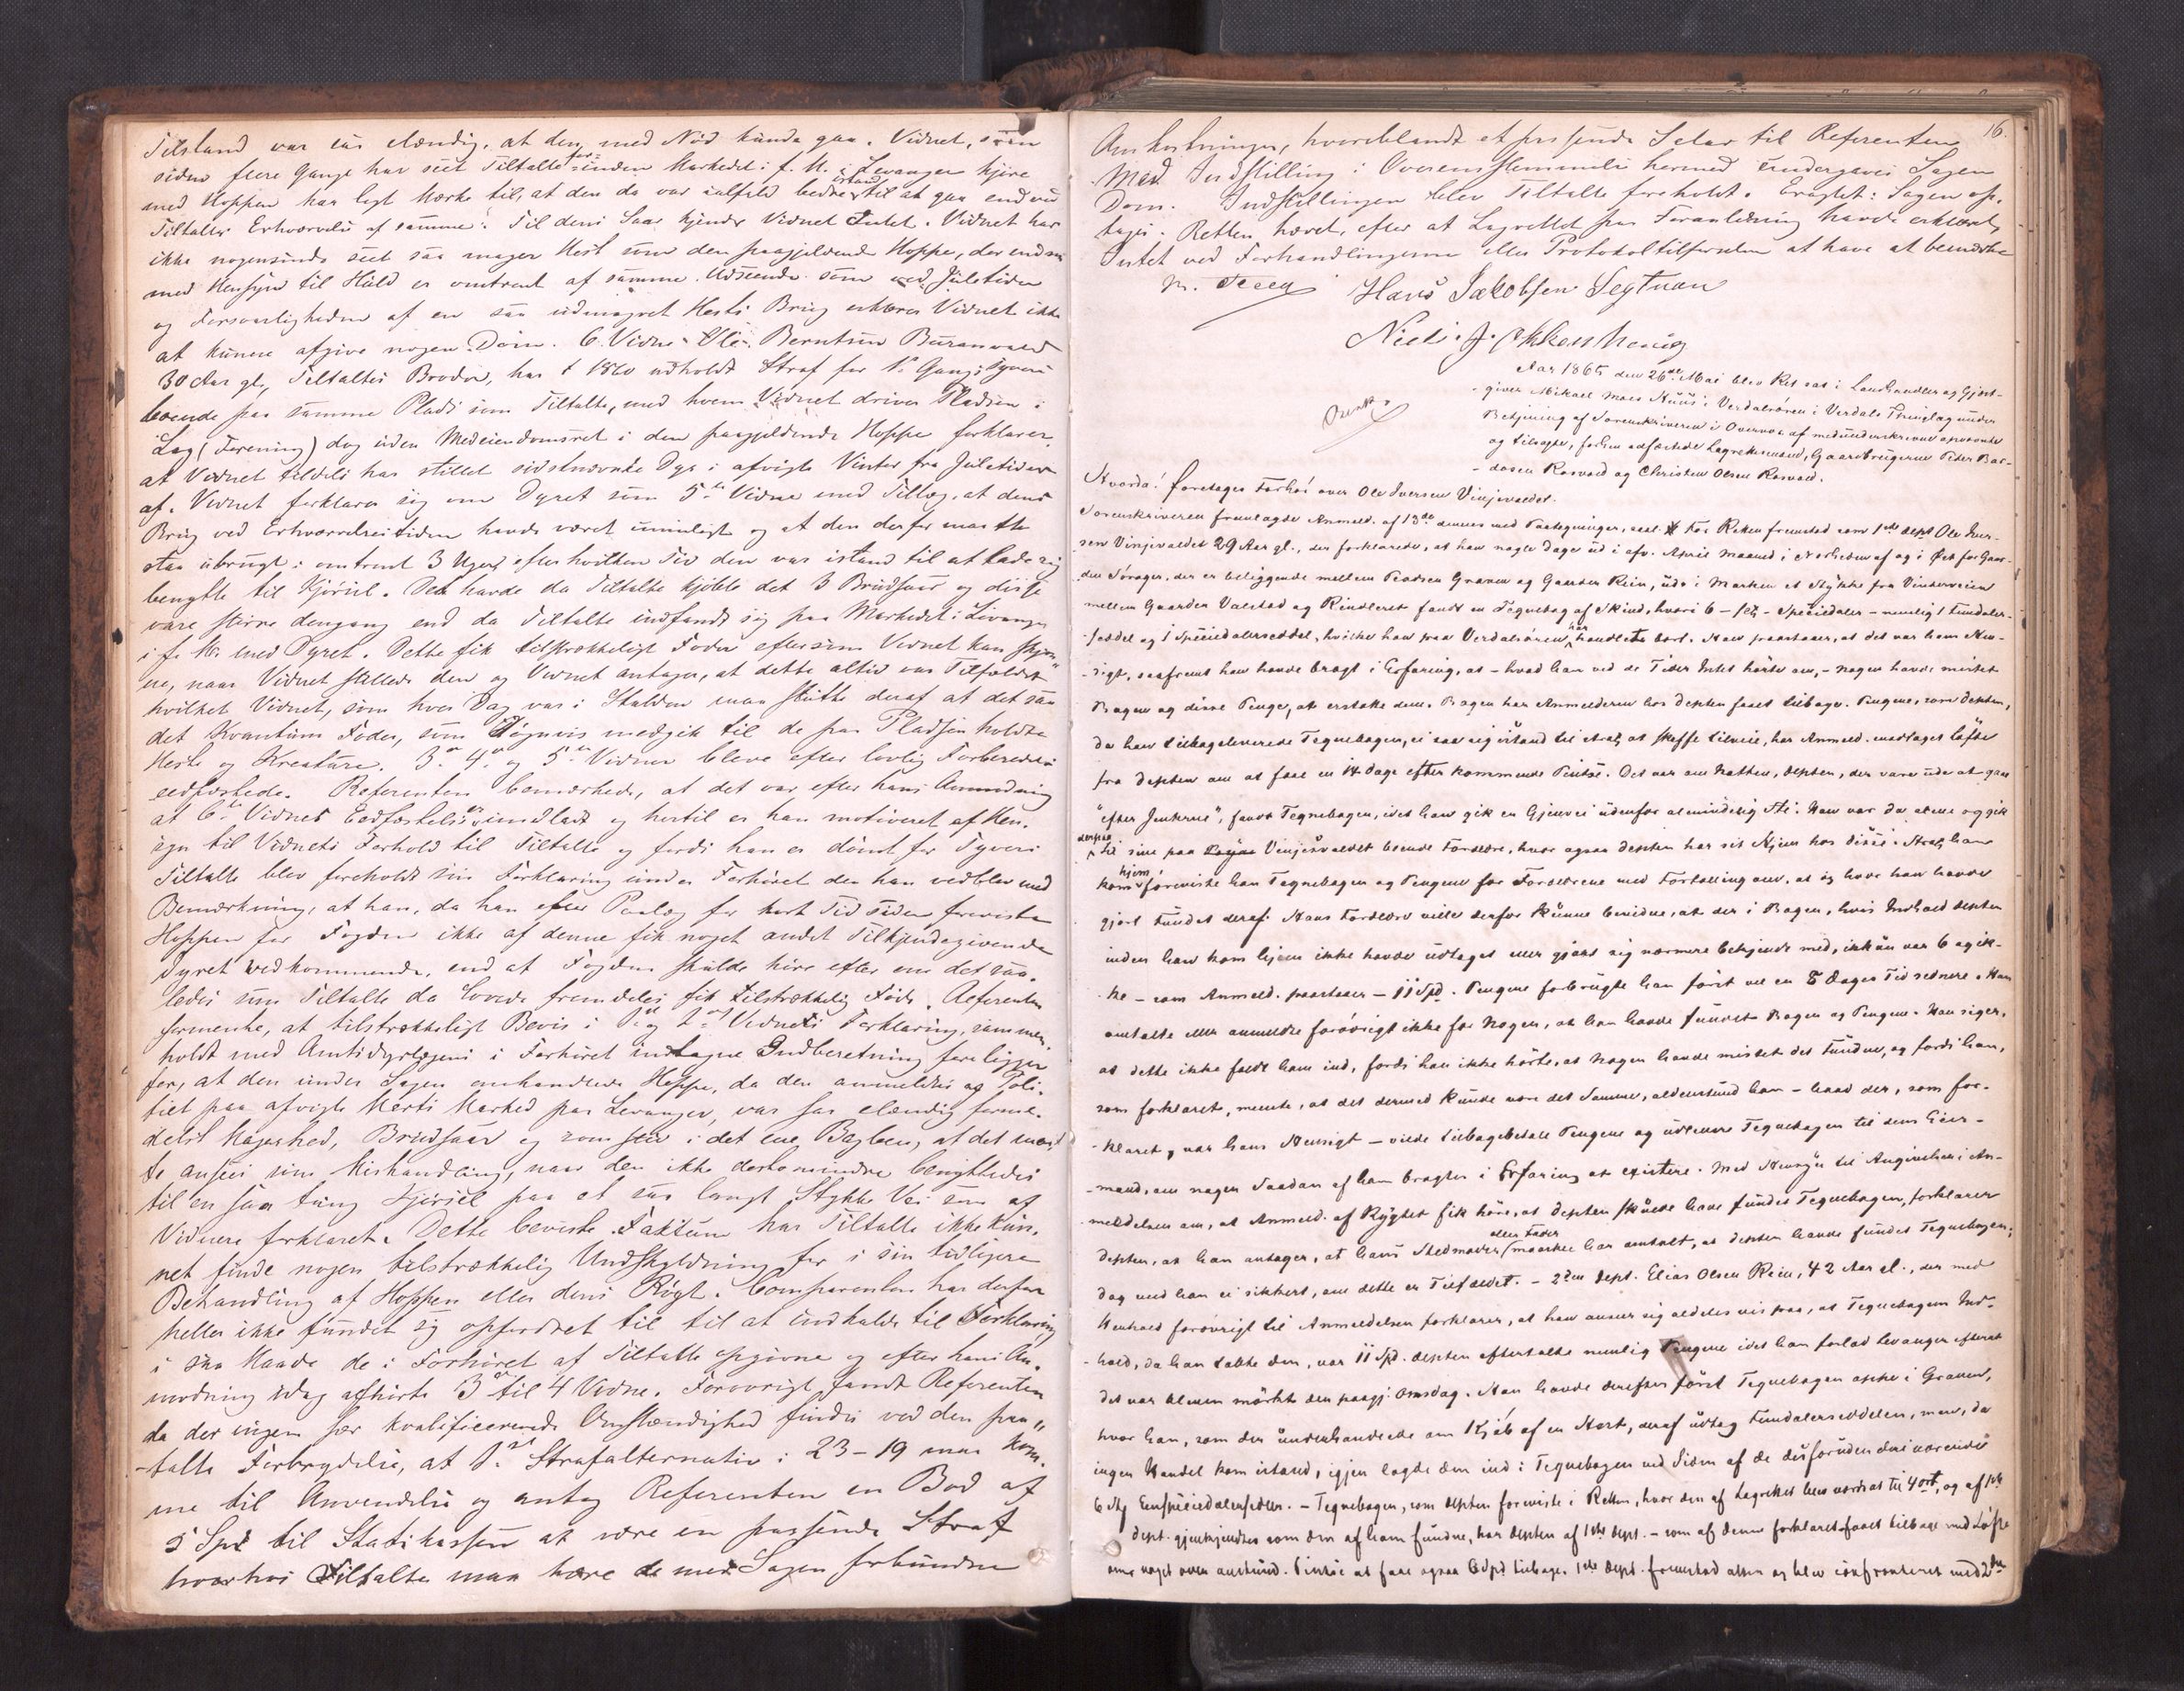 Tilstand var saa elændig, at den med Nød kunde gaa. Vidnet, som
siden flere Gange har seet Tiltalte inden Markedet i f. M. i Levanger kjøre
med Hoppen har lagt Mærke til, at den da var ialfald bedre istand til at gaa end ved
Tiltaltes Erhvervelse af samme. Til dens Saar kjender Vidnet Intet. Vidnet har
ikke nogensinde seet saa mager Hest som den paagjeldende Hoppe, der endnu
med Hensyn til Huld er omtrent af samme Udseende som ved Juletider
og Forsvarligheden af en saa udmagret Hests Brug erklærer Vidnet ikke
at kunne afgive nogen Dom. 6. Vidne Ole Berntsen Buranvald
30 Aar gl., Tiltaltes Broder, har i 1860 udholdt Straf for 1. Gangs Tyveri
boende paa samme Plads som Tiltalte, med hvem Vidnet driver Pladsen i
Lag (Forening) dog uden Medeiendomsret i den paagjeldende Hoppe forklarer,
at Vidnet tildels har stillet sidstnævnte Dyr i afvigte Vinter fra Juletider
af. Vidnet forklarer sig om Dyret som 5te Vidne med Tillæg, at dens
Brug ved Erhvervelsestiden havde været umuligt og at den derfor maatte
staa ubrugt i omtrent 3 Uger, efter hvilken Tid den var istand til at lade sig
benytte til Kjørsel. Den havde da Tiltalte kjøbte det 3 Brudsaar og disse
vare større dengang end da Tiltalte indfandt sig paa Markedet i Levanger
i f. M. med Dyret. Dette fik tilstrækkeligt Foder eftersom Vidnet kan skjøn-
ne, naar Vidnet stillede den og Vidnet antager, at dette altid var Tilfældet
hvilket Vidnet, som hver Dag var i Stalden maa slutte deraf at det saa
det Kvantum Foder, som Døgnvis medgik til de paa Pladsen holdte
Heste og Kreature. 3die 4de og 5te Vidner bleve efter lovlig Forberedelse
eedfæstede. Referenten bemærkede, at det var efter hans Anmodning
at 6te Vidnes Eedfæstelse er undladt og hertil er han motiveret af Hen-
syn til Vidnets Forhold til Tiltalte og fordi han er dømt for Tyveri
Tiltalte blev foreholdt sin Forklaring under Forhøret den han vedblev med
Bemærkning, at han, da han efter Paalæg for kort Tid siden foreviste
Hoppen for Fogden ikke af denne fik noget andet Tilkjendegivende
Dyret vedkommende, end at Fogden skulde høre efter om det saa-
ledes som Tiltalte da lovede fremdeles fik tilstrækkelig Føde. Referenten
formente, at tilstrækkeligt Bevis i 1ste og 2det Vidnets Forklaring, sammen-
holdt med Amtsdyrlægens i Forhøret indtagne Indberetning foreligger
for, at den under Sagen omhandlede Hoppe, da den anmeldtes og Poli-
tiet paa afvigte Marts Marked paa Levanger, var saa elændig, forme-
delst Magerhed, Brudsaar og som stiv i det ene Bagben, at det maat-
te ansees som Mishandling, naar den ikke destomindre benyttedes
til en saa tung Kjørsel paa et saa langt Stykke Vei som af
Vidnerne forklaret. Dette beviste Faktum har Tiltalte ikke kun-
net finde nogen tilstrækkelig Undskyldning for i sin tidligere
Behandling af Hoppen eller dens Røgt. Comparenten har derfor
heller ikke fundet sig opfordret til til at indkalde til Forklaring
i saa Maade de i Forhøret af Tiltalte opgivne og efter hans An-
modning idag afhørte 3die til 4 Vidne. Forøvrigt fandt Referenten
da der ingen sær kvalificerende Omstændighed findes ved den paa-
talte Forbrydelse, at 1ste Strafalternativ i 23-19 maa kom-
me til Anvendelse og antog Referenten en Bod af
5 Spd til Statskassen at være en passende Straf
hvorhos Tiltalte maa bære de med Sagen forbundne
16.
Omkostninger, hvoriblandt et passende Salær til Referenten
Med Indstilling i Overensstemmelse hermed undergaves Sagen
Dom. Indstillingen blev Tiltalte foreholdt. Eragtet: Sagen op-
tages. Retten hævet, efter at Lagrettet paa Foranledning havde erklæret
Intet ved Forhandlingerne eller Protokoltilførselen at have at bemærke
Hans Jakobsen Segtnan
Niels J.
Aar 1865 den 26de Mai blev Ret sat i Landhandler og Gjest-
giver Mikael Maes Huus i Verdalsøren i Verdals Thinglag under
Betjening af Sorenskriveren i Overvær af medunderskrevne opnævnte
og tilsagte, forhen edfæstede Lagrettesmænd, Gaardbrugerne Peder Bar-
dosen Rosvold og Christen Olsen Rosvold.
Hvorda: foretages Forhør over Ole Iversen Vinjevaldet.
Sorenskriveren fremlagde Anmeld. af 13de dennes med Paategninger, saal. For Retten fremstod som 1ste Dept Ole Iver-
sen Vinjevaldet 29 Aar gl., der forklarede, at han nogle Dage ud i afv. April Maaned i Nærheden af og i Øst for Gaar-
den Sørager, der er beliggende mellem Pladsen Graven og Gaarden Rein, ude i Marken et Stykke fra Vinterveien
mellem Gaarden Valstad og Rindleret fandt en Tegnebog af Skind, hvori 6 – sex – Speciedaler – nemlig 1 Femdaler-
seddel og 1 Speciedalerseddel, hvilke han paa Verdalsøren har handlede bort. Han paastaaer, at det var hans Hen-
sigt, saafremt han havde bragt i Erfaring, at – hvad han ved de Tider Intet hørte om, – nogen havde mistet
Bogen og disse Penge, at erstatte dem. Bogen har Anmelderen hos Depten faaet tilbage. Pengene, som Depten,
da han tilbageleverede Tegnebogen, ei saa sig istand til strax at skaffe tilveie, har Anmeld. modtaget Løfte
fra Depten om at faae en 14 Dage efter kommende Pintse. Det var om Natten, Depten, der var ude at gaa
"efter Jenterne", fandt Tegnebogen, idet han gik en Gjenvei udenfor almindelig Sti. Han var da alene og gik
derpaa til sine paa Vinjesvaldet boende Forældre, hvor ogsaa Depten har sit Hjem hos disse. Strax han
kom hjem foreviste han Tegnebogen og Pengene for Forældrene med Fortælling om, at og hvor han havde
gjort Fundet deraf. Hans Forældre ville derfor kunne bevidne, at der i Bogen, hvis Indhold Depten
inden han kom hjem ikke havde udtaget eller gjort sig nærmere bekjendt med, ikkun var 6 og ik-
ke – som Anmeld. paastaaer – 11 Spd. Pengene forbrugte han først vel en 8 Dages Tid senere. Han
omtalte eller anmeldte forøvrigt ikke for Nogen, at han havde fundet Bogen og Pengene. Han siger,
at dette ikke faldt ham ind, fordi han ikke hørte, at Nogen havde mistet det Fundne, og fordi han,
som forklaret, mente, at det dermed kunde være det Samme, aldenstund han – hvad der, som for-
klaret, var hans Hensigt – vilde tilbagebetale Pengene og udlevere Tegnebogen til dens Eier-
mand, om nogen Saadan af ham bragtes i Erfaring at existere. Med Hensyn til Angivelsen i An-
meldelsen om, at Anmeld. af Rygtet fik høre, at Depten skulde have fundet Tegnebogen, forklarer
Depten, at han antager, at hans Stedmoder eller Fader maaskee har omtalt, at Depten havde fundet Tegnebogen;
dog veed han ei sikkert, om dette er Tilfældet. – 2den Dept. Elias Olsen Rein, 42 Aar gl., der med
Henhold forøvrigt til Anmeldelsen forklarer, at han anseer sig aldeles vis paa, at Tegnebogens Ind-
hold, da han tabte den, var 11 Spd. Depten eftertalte nemlig Pengene idet han forlod Levanger efterat
det var bleven mørkt den paagj. Onsdag. Han havde derefter først Tegnebogen oppe i Graven,
hvor han, som der underhandlede om Kjøb af en Hest, deraf udtog Femdalerseddelen, men, da
ingen Handel kom istand, igjen lagde den ind i Tegnebogen ved Siden af de desforuden deri værende
6 Stk Eenspeciedalersedler. – Tegnebogen, som Depten foreviste i Retten, hvor den af Lagrettet blev vurdert til 4 ort, og af 1ste
Dept. gjenkjendtes som den af ham fundne, har Depten af 1ste Dept. – som af denne forklaret – faaet tilbage med Løfte
om noget over anstund. Pintse at faae ogsaa 6 Spd tilbage. 1ste Dept. fremstod atter og blev confronteret med 2den